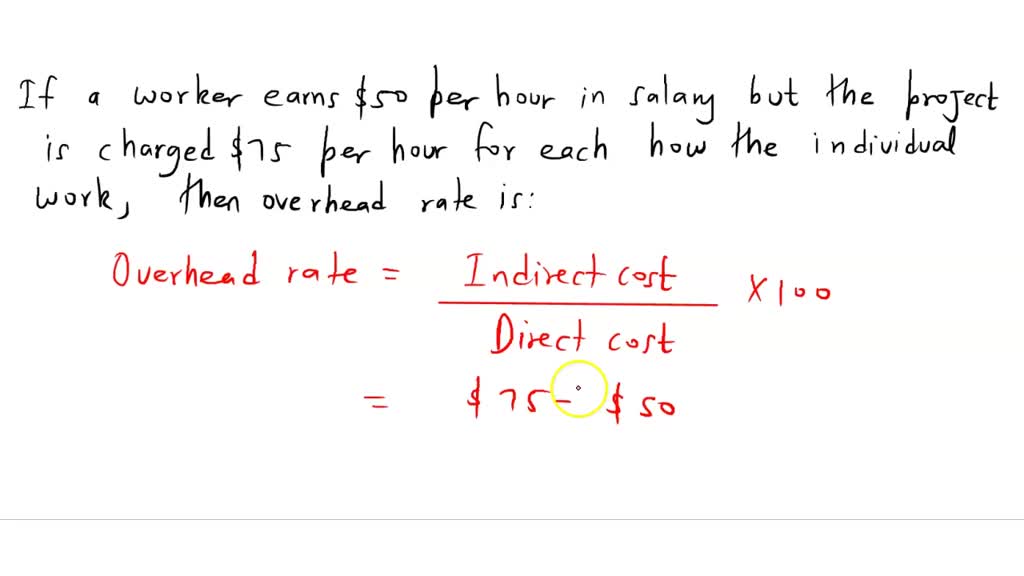 If a worker earns $50 per hour in salary but the project
is charged $75 per hour for each how the individual
work, then overhead rate is:
Overhead rate = Indirect cost × 100
Direct cost
= $75 - $50